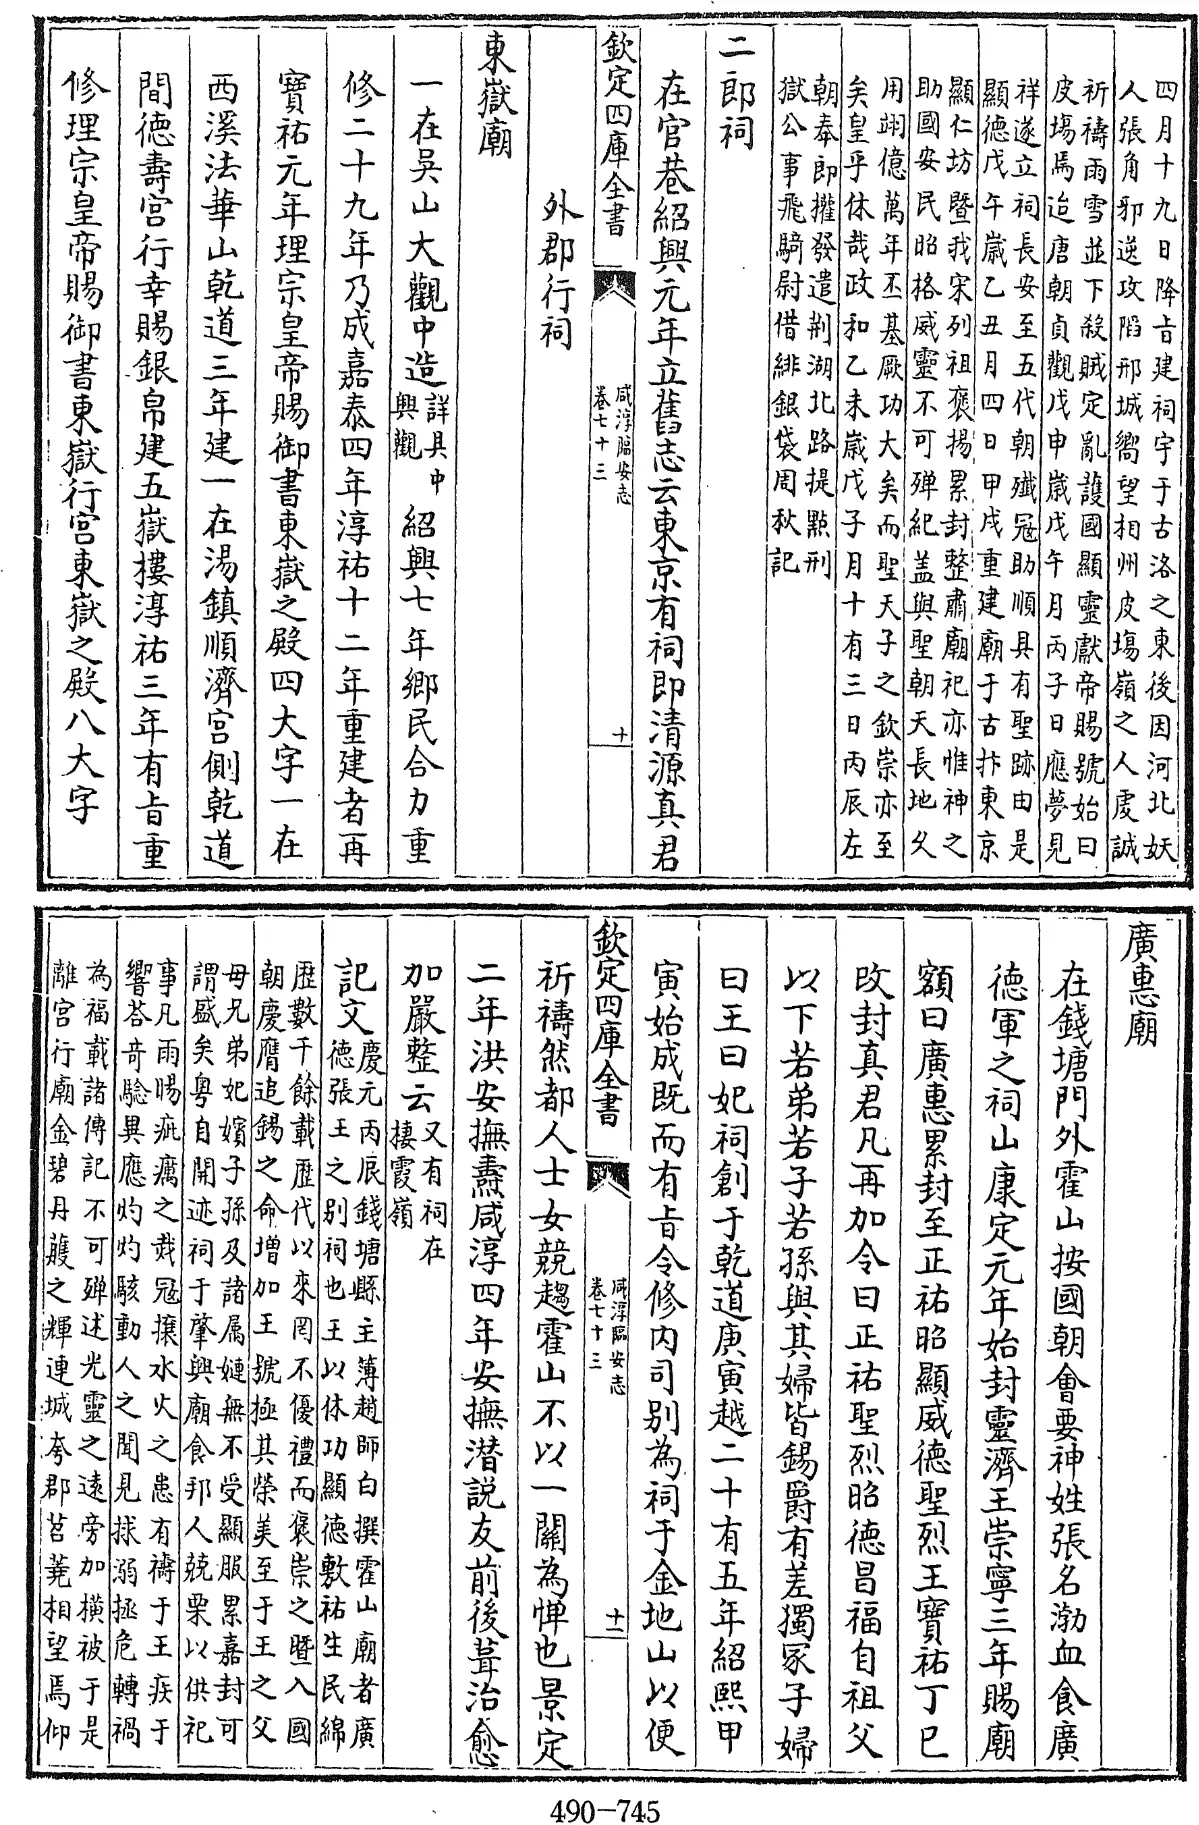 四月十九日降㫖建祠宇于古洛之東後因河北妖
人張角邪逆攻䧟邢城嚮望相州皮塲嶺之人䖍誠
祈禱雨雪並下殺賊定亂䕶國顯靈獻帝賜號始曰
皮塲焉迨唐朝貞觀戊申嵗戊午月丙子日應夢見
祥遂立祠長安至五代朝殲冦助順具有聖跡由是
顯徳戊午嵗乙丑月四日甲戌重建廟于古抃東京
顯仁坊暨我宋列祖褒揚累封整肅廟祀亦惟神之
助國安民昭格威靈不可殫紀盖與聖朝天長地久
用翊億萬年丕基厥功大矣而聖天子之欽崇亦至
矣皇乎休哉政和乙未嵗戊子月十有三日丙辰左
朝奉郎擢發遣荆湖北路提㸃刑
獄公事飛騎尉借緋銀袋周秋記
二郎祠
在官巷紹興元年立舊志云東京有祠即清源真君
欽定四庫全書
咸淳臨安志
卷七十三
十
外郡行祠
東嶽廟
一在吳山大觀中造詳具中興觀紹興七年鄉民合力重
修二十九年乃成嘉泰四年淳祐十二年重建者再
寳祐元年理宗皇帝賜御書東嶽之殿四大字一在
西溪法華山乾道三年建一在湯鎮順濟宫側乾道
間徳壽宫行幸賜銀帛建五嶽樓淳祐三年有㫖重
修理宗皇帝賜御書東嶽行宫東嶽之殿八大字
廣惠廟
在錢塘門外霍山按國朝㑹要神姓張名渤血食廣
徳軍之祠山康定元年始封靈濟王崇寧三年賜廟
額曰廣惠累封至正祐昭顯威徳聖烈王寳祐丁巳
改封真君凡再加令曰正祐聖烈昭徳昌福自祖父
以下若弟若子若孫與其婦皆錫爵有差獨冡子婦
曰王曰妃祠創于乾道庚寅越二十有五年紹熙甲
寅始成既而有㫖令修内司别為祠于金地山以便
欽定四庫全書
咸淳臨安志
卷七十三
十一
祈禱然都人士女競趨霍山不以一闗為憚也景定
二年洪安撫燾咸淳四年安撫潜説友前後葺治愈
加嚴整云又有祠在棲霞嶺
記文慶元丙辰錢塘縣主薄趙師白撰霍山廟者廣
徳張王之别祠也王以休功顯徳敷祐生民綿
歴數千餘載歴代以來罔不優禮而褒崇之暨入國
朝慶膺追錫之命増加王號極其榮美至于王之父
母兄弟妃嬪子孫及諸属媫無不受顯服累嘉封可
謂盛矣粤自開迹祠于肇興廟食邦人兢栗以供祀
事凡雨暘疵癘之烖冦攘水火之患有禱于王疾于
響荅竒騐異應灼灼駭動人之聞見捄溺拯危轉禍
為福載諸傳記不可殫述光靈之逺旁加横被于是
離宫行廟金碧丹雘之輝連城夸郡苕荛相望焉仰
490-745